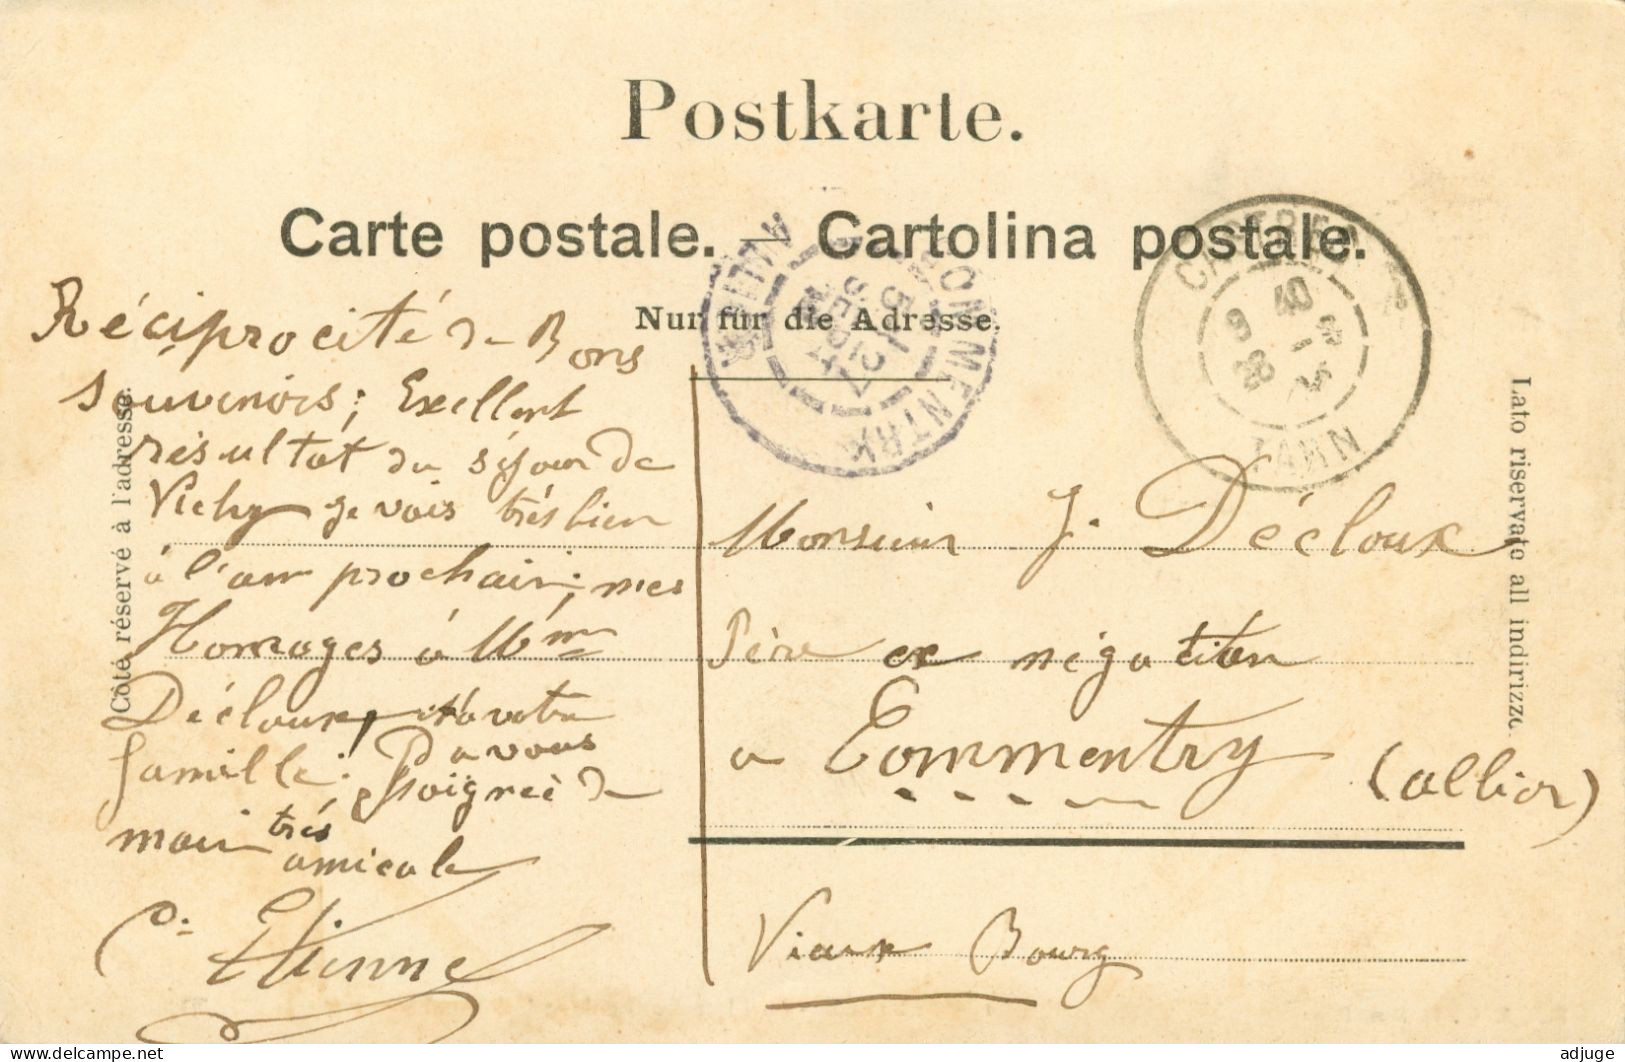 Postkarte.
Carte postale. — Cartolina postale.
Nur für die Adresse.
Côté réservé à l'adresse.
Lato riservato all indirizzo.
COMMENTRY
ALLIER
CASTRES
TARN
Réciprocité de Bons
Souvenirs; Exellent
résultat du séjour de
Vichy je vais très bien
à l'an prochain; mes
Homages à Mme
Décloux, et à votre
famille. à vous
Poignée de
main très
amicale
Etienne
Monsieur J. Décloux
Père ex négotian
a Commentry
(allier)
Vieux Bourg
delcampe.net
adjuge